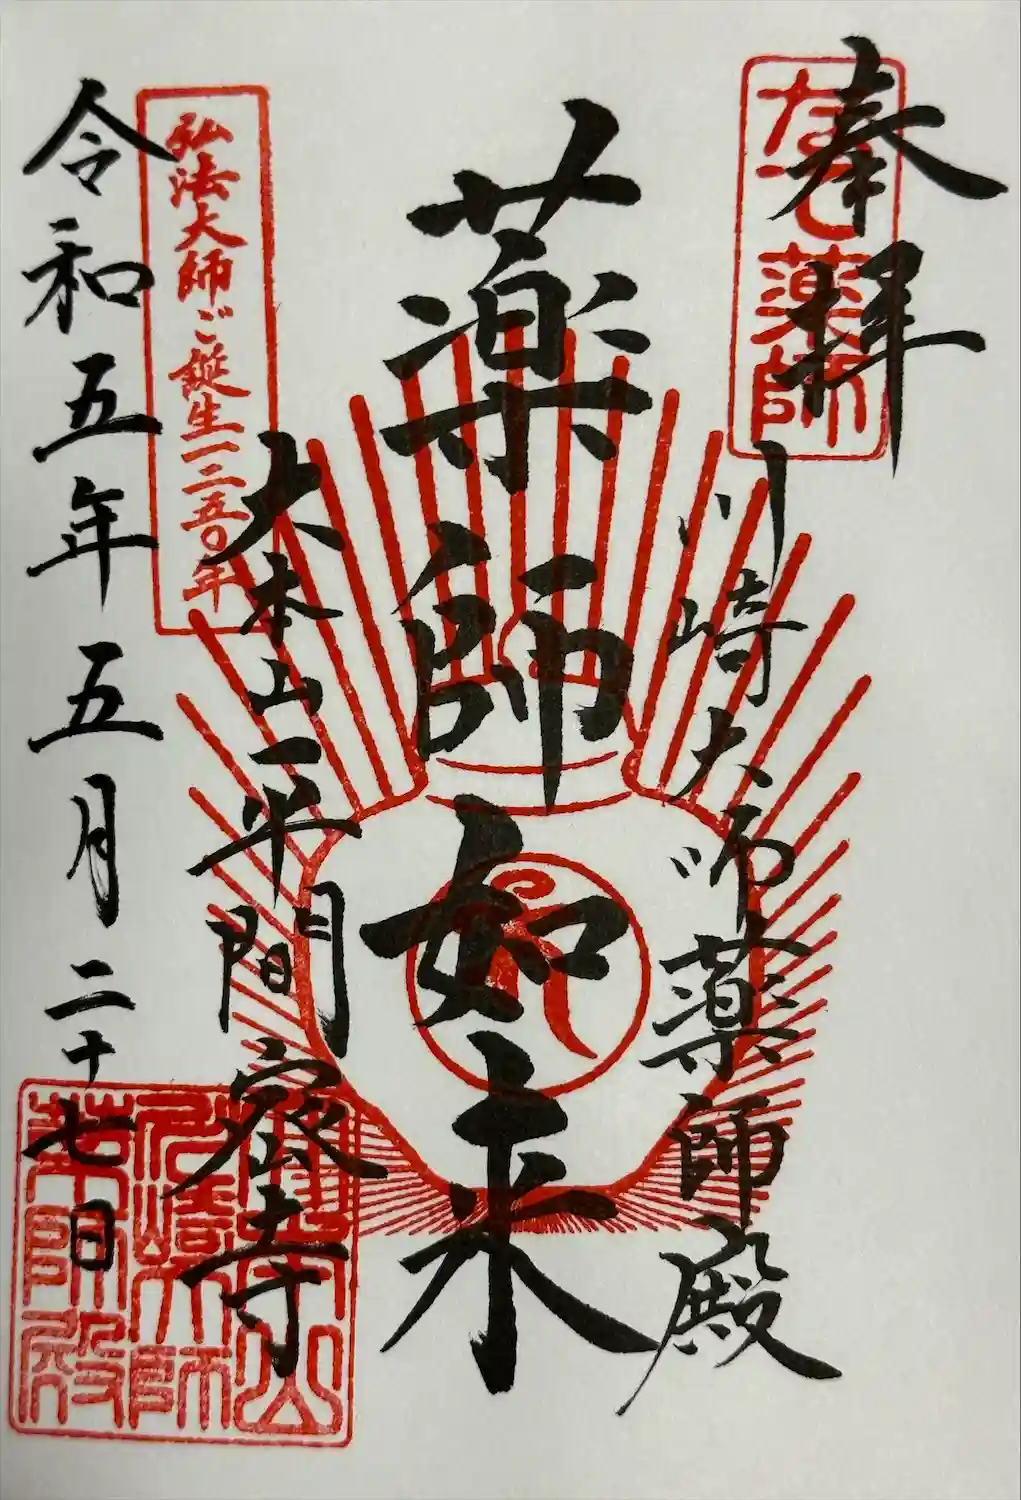 奉拝
なで薬師
川崎大師薬師殿
薬師如来
大本山平間寺
弘法大師ご誕生一二五〇年
令和五年五月二十七日
川崎大師
薬師殿